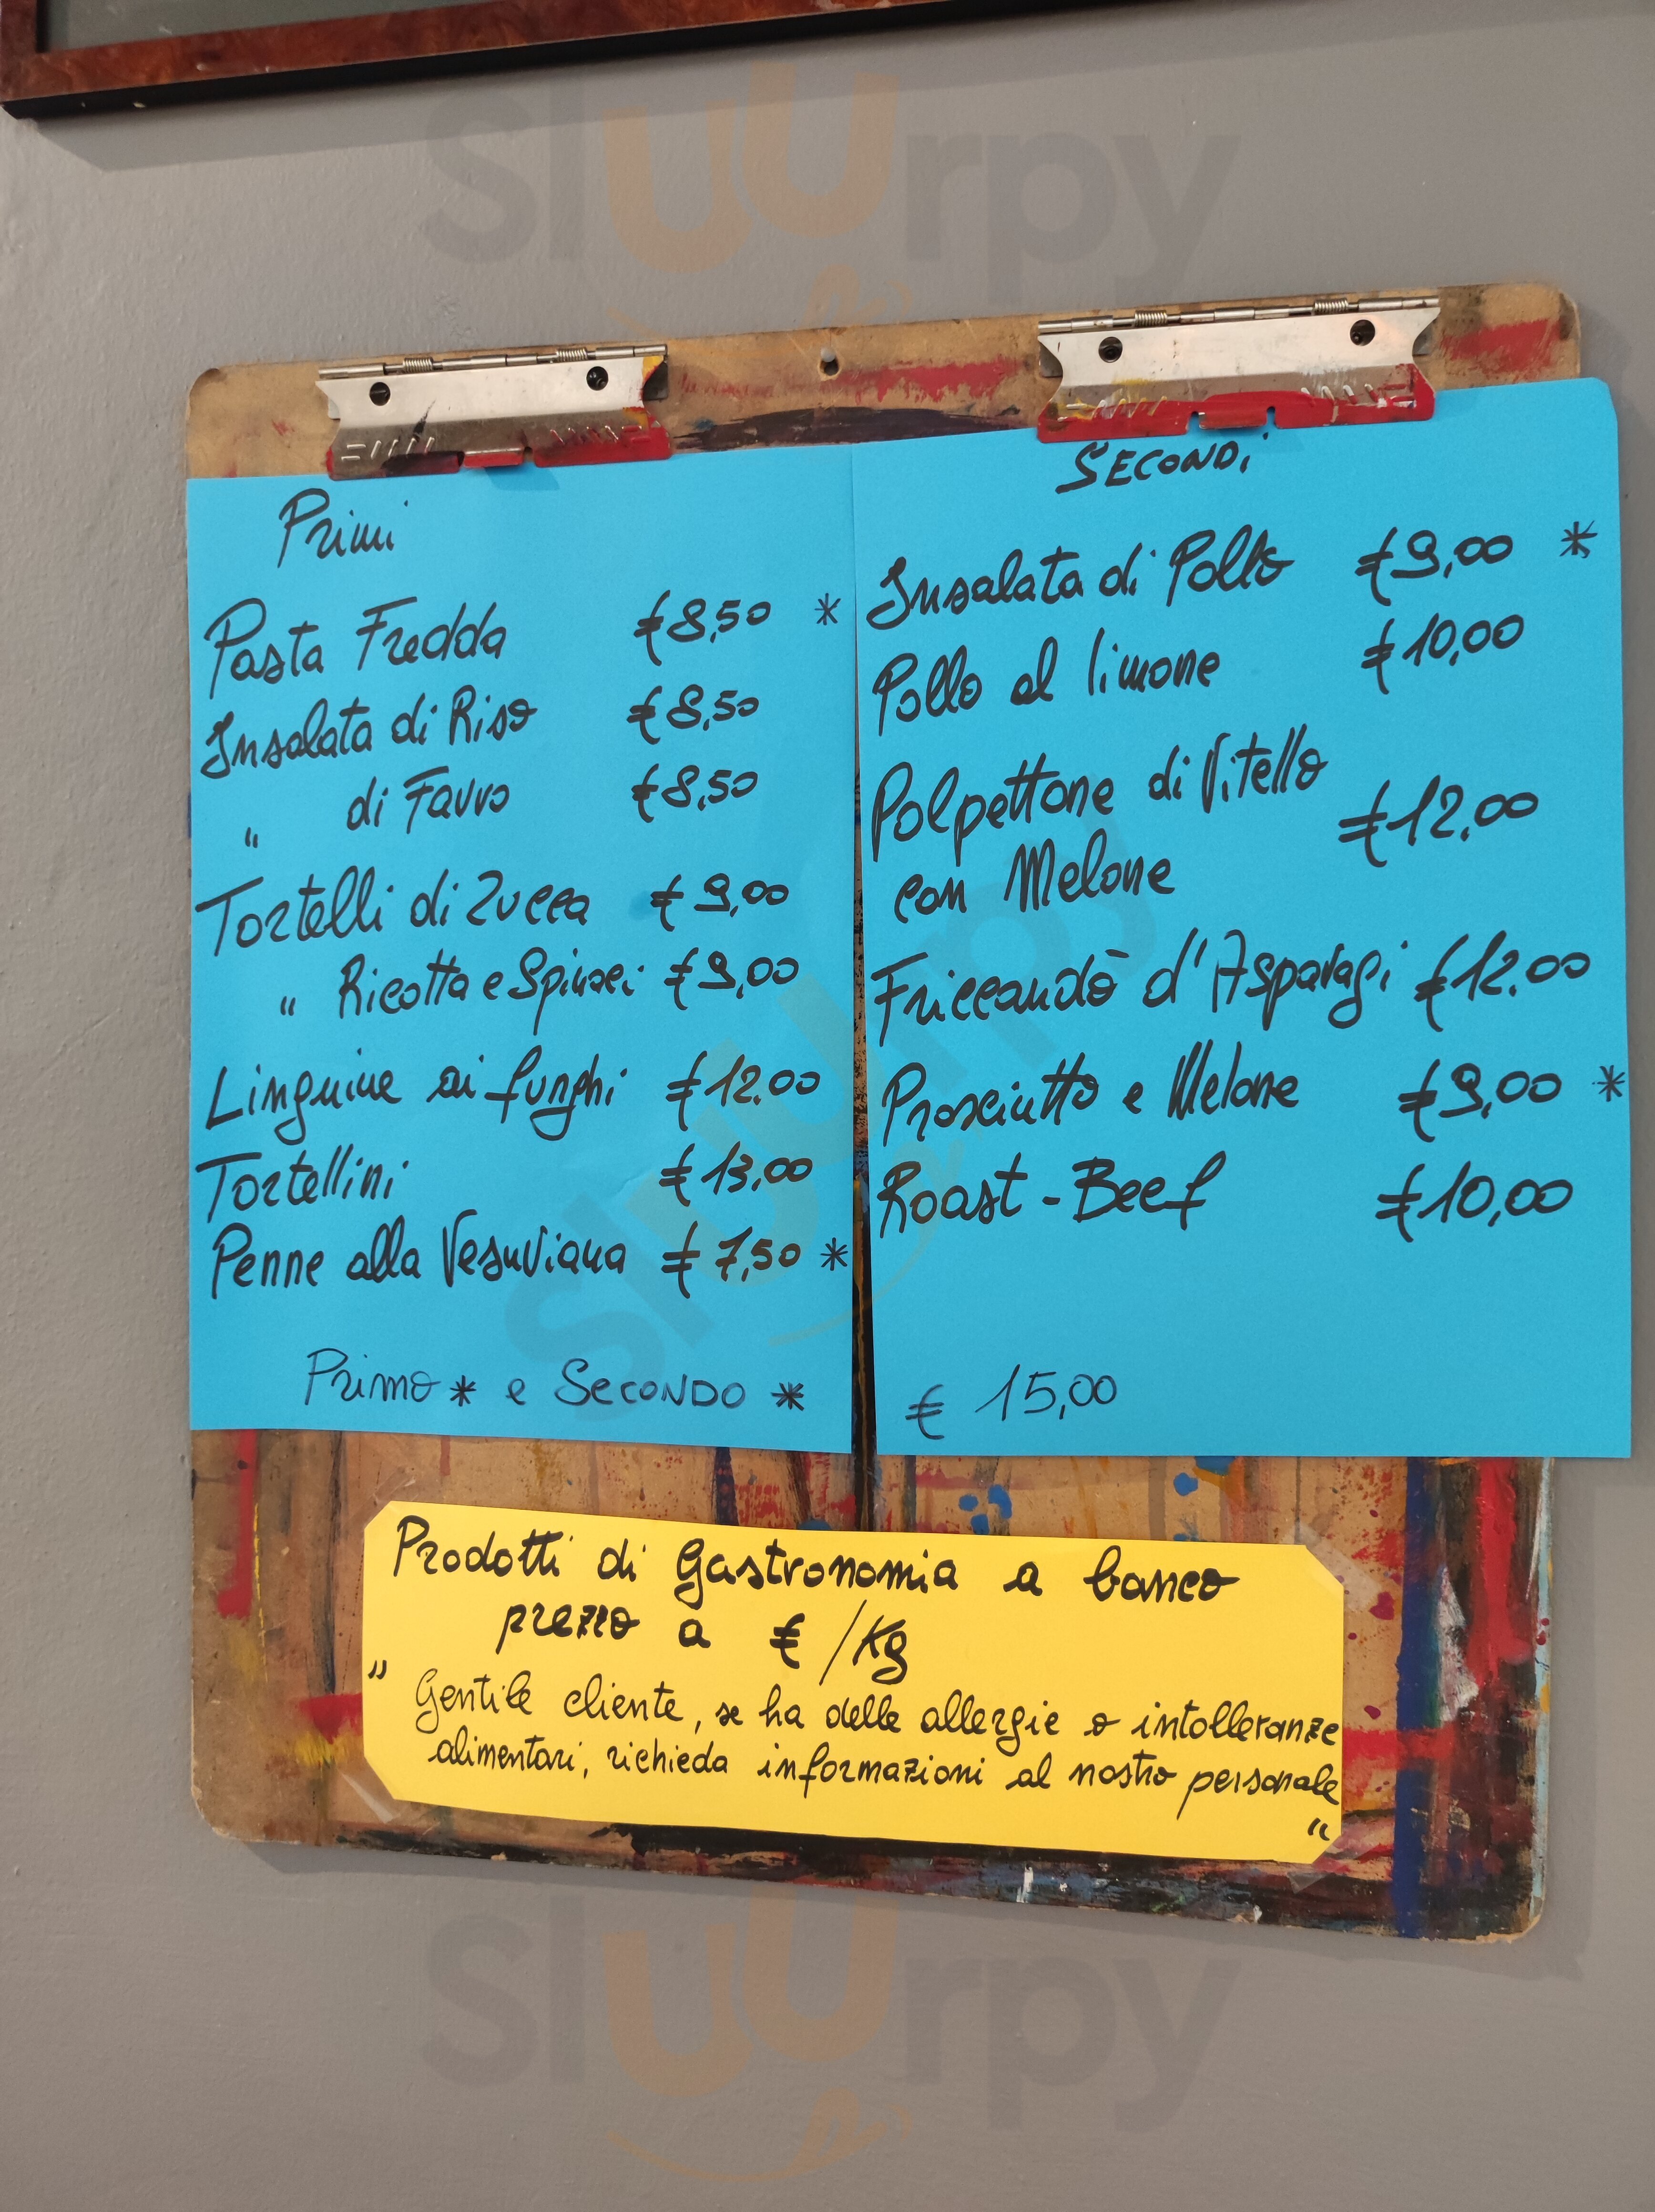 Primi
Pasta Fredda €8,50 *
Insalata di Riso €8,50
" di Farro €8,50
Tortelli di Zucca €9,00
" Ricotta e Spinaci €9,00
Linguine ai funghi €12,00
Tortellini €13,00
Penne alla Vesuviana €7,50 *
Primo * e SECONDO *
SECONDi
Insalata di Pollo €9,00 *
Pollo al limone €10,00
Polpettone di Vitello
con Melone €12,00
Friccandò d'Asparagi €12,00
Prosciutto e Melone €9,00 *
Roast-Beef €10,00
€ 15,00
Prodotti di Gastronomia a banco
prezzo a € /Kg
" Gentile cliente, se ha delle allergie o intolleranze
alimentari, richieda informazioni al nostro personale
"
Sluurpy
Sluurpy
Sluurpy